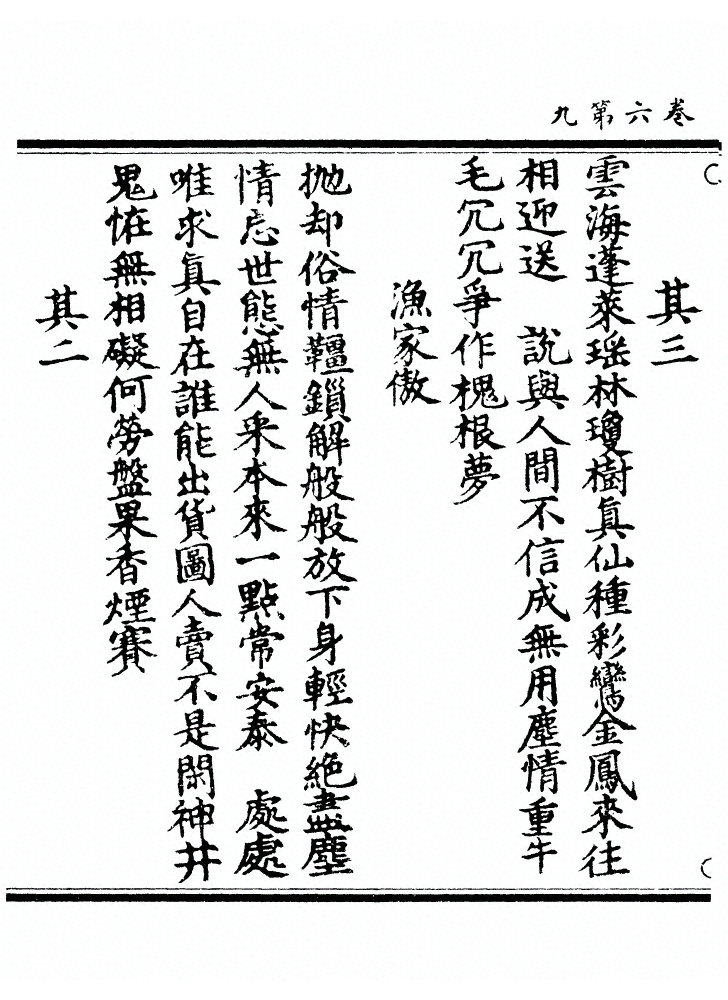 卷六第九
其三
雲海蓬萊瑶林瓊樹真仙種彩鸞金鳳來往
相迎送　說與人間不信成無用塵情重牛
毛冗冗爭作槐根夢
漁家傲
抛却俗情韁鎖解般般放下身輕快絕盡塵
情忘世態無人采本來一點常安泰　處處
唯求真自在誰能出貨圖人賣不是閑神并
鬼恠無相礙何勞盤果香煙賽
其二